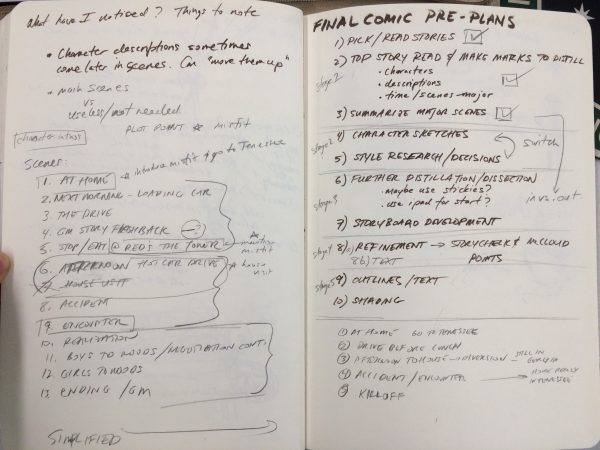 What have I noticed? Things to note
• Character descriptions sometimes
come later in scenes. Can "move them up"
• main scenes
vs
useless/not needed
PLOT POINT ★ misfit
character intros
Scenes:
1. AT HOME ★ introduce misfit & go to Tennessee
2. NEXT MORNING - LOADING CAR
3. THE DRIVE
4. GM STORY FLASHBACK
5. STOP/EAT @ RED'S THE TOWER ★ mention misfit
6. AFTERNOON HOT CAR DRIVE house visit
7. HOUSE VISIT
8. ACCIDENT
9. ENCOUNTER
10. REALIZATION
11. BOYS TO WOODS/NEGOTIATION CONT.
12. GIRLS TO WOODS
13. ENDING/GM
SIMPLIFIED
FINAL COMIC PRE-PLANS
1) PICK/READ STORIES
2) TOP STORY READ & MAKE MARKS TO DISTILL
stage 1
• characters
• descriptions
• time/scenes - major
3) SUMMARIZE MAJOR SCENES
stage 2
4) CHARACTER SKETCHES
switch
5) STYLE RESEARCH/DECISIONS
6) FURTHER DISTILLATION/DISSECTION
in vs. out
stage 3
• maybe use stickies?
• use ipad for start?
7) STORYBOARD DEVELOPMENT
stage 4
8) REFINEMENT → STORYCHECK & MCCLOUD
8b) TEXT POINTS
stage 5
9) OUTLINES/TEXT
10) SHADING
① AT HOME GO TO TENNESSEE
② DRIVE BEFORE LUNCH
③ AFTERNOON TO HOUSE → DIVERSION - STILL IN GEORGIA
④ ACCIDENT/ENCOUNTER → HOME REALLY IN TENNESSEE
⑤ KILLOFF